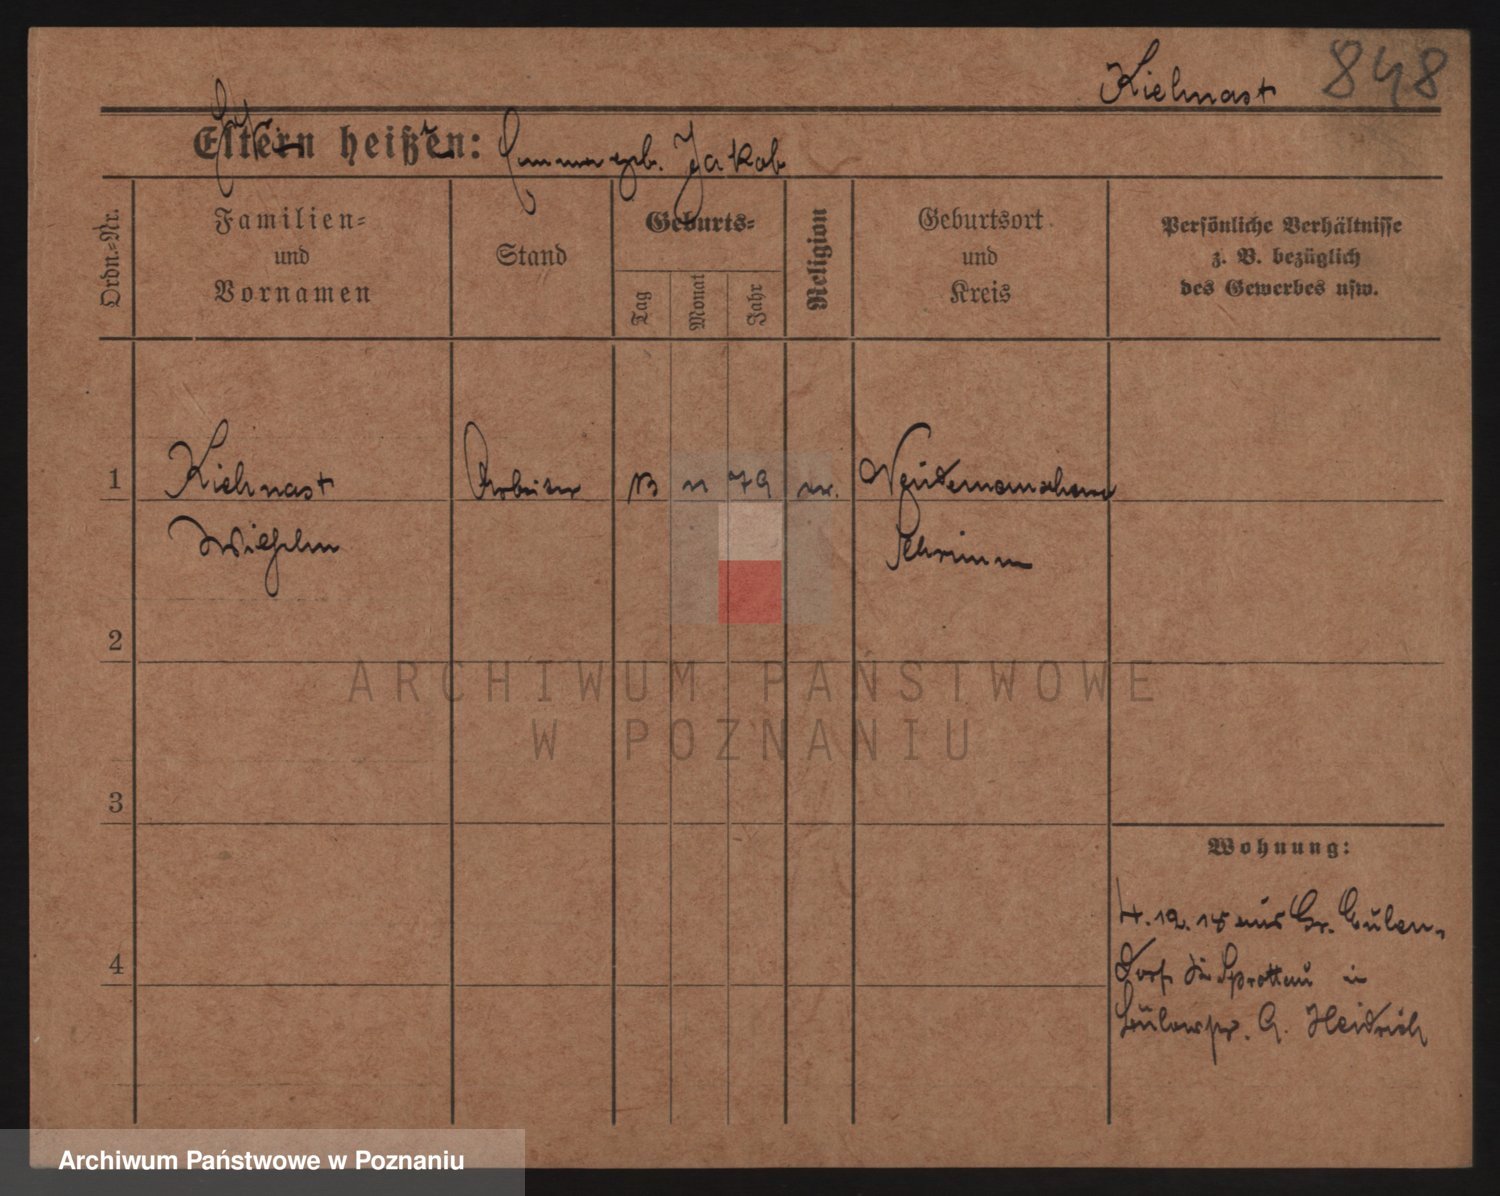 Kiehnast 848
Eltern heißen: Emma geb. Jakob
Ordn.-Nr.
Familien-
und
Vornamen
Stand
Geburts-
Tag
Monat
Jahr
Religion
Geburtsort
und
Kreis
Persönliche Verhältnisse
z. B. bezüglich
des Gewerbes usw.
1 Kiehnast Arbeiter 13 11 79 ev.
Wilhelm Schrimm
2
3
4
Wohnung:
4.12.18 aus Gr. Eulau-
dorf Kr Sprottau in
Bülowstr. 9. Heidrich
ARCHIWUM PAŃSTWOWE
W POZNANIU
Archiwum Państwowe w Poznaniu